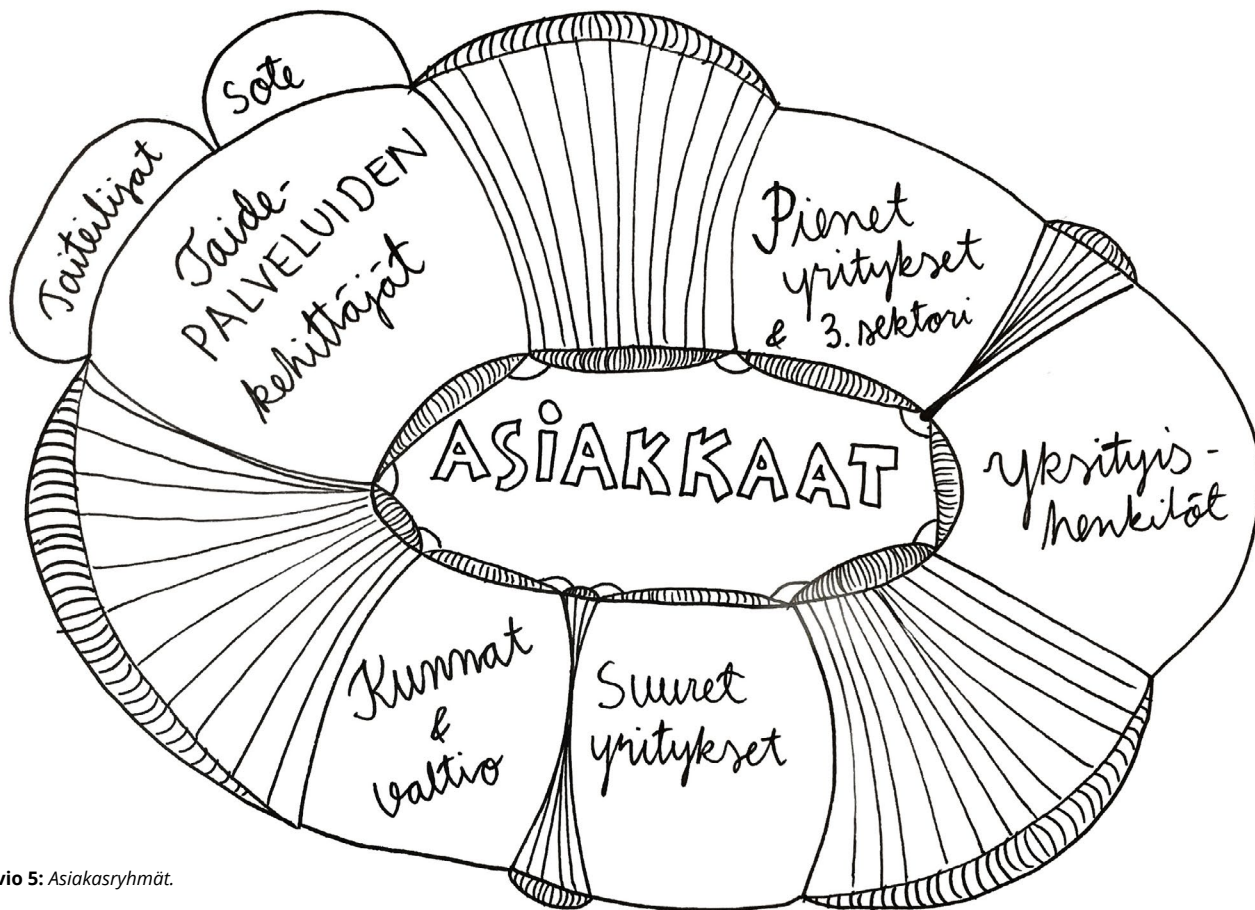 Sote
Taiteilijat
Taide-
PALVELUIDEN
kehittäjät
Pienet
yritykset
& 3. sektori
ASIAKKAAT
Yksityis-
henkilöt
Kunnat
&
valtio
Suuret
yritykset
vio 5: Asiakasryhmät.